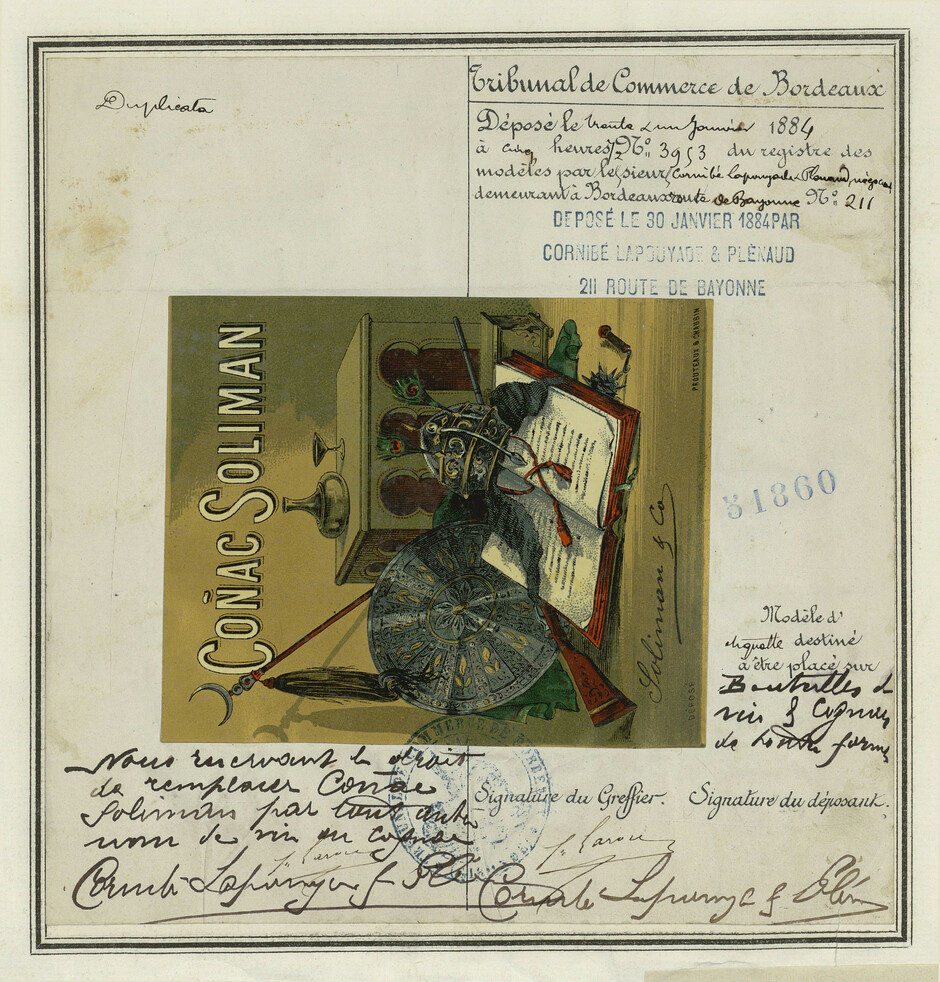 Duplicata
Tribunal de Commerce de Bordeaux
Déposé le trente & un Janvier 1884
à cinq heures ½ Nº 3953 du registre des
modèles par les sieurs Cornibé Lapouyade & Plénaud négoc
demeurant à Bordeaux route de Bayonne Nº 211
DEPOSÉ LE 30 JANVIER 1884 PAR
CORNIBÉ LAPOUYADE & PLÉNAUD
211 ROUTE DE BAYONNE
COÑAC SOLIMAN
PROUTEAUX & CHAUBIN
Soliman & Co
DÉPOSÉ
51860
Modèle d'
étiquette destiné
à être placé sur
Bouteilles de
vin & Cognac
de toutes formes
Nous reservant le droit
de remplacer Coñac
Soliman par tout autre
nom de vin ou cognac
COMMERCE DE BORDEAUX
Signature du Greffier.
Signature du déposant.
Cornibé Lapouyade & Plé
Cornibé Lapouyade & Plén